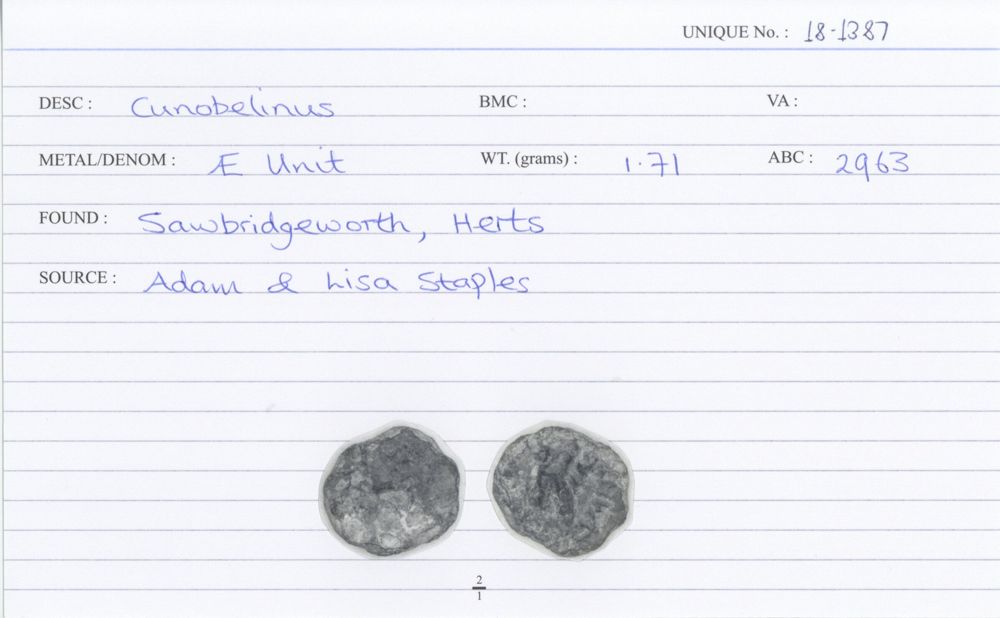 UNIQUE No. : 18-1387
DESC : Cunobelinus BMC : VA :
METAL/DENOM : Æ Unit WT. (grams) : 1.71 ABC : 2963
FOUND : Sawbridgeworth, Herts
SOURCE : Adam & Lisa Staples
2
1